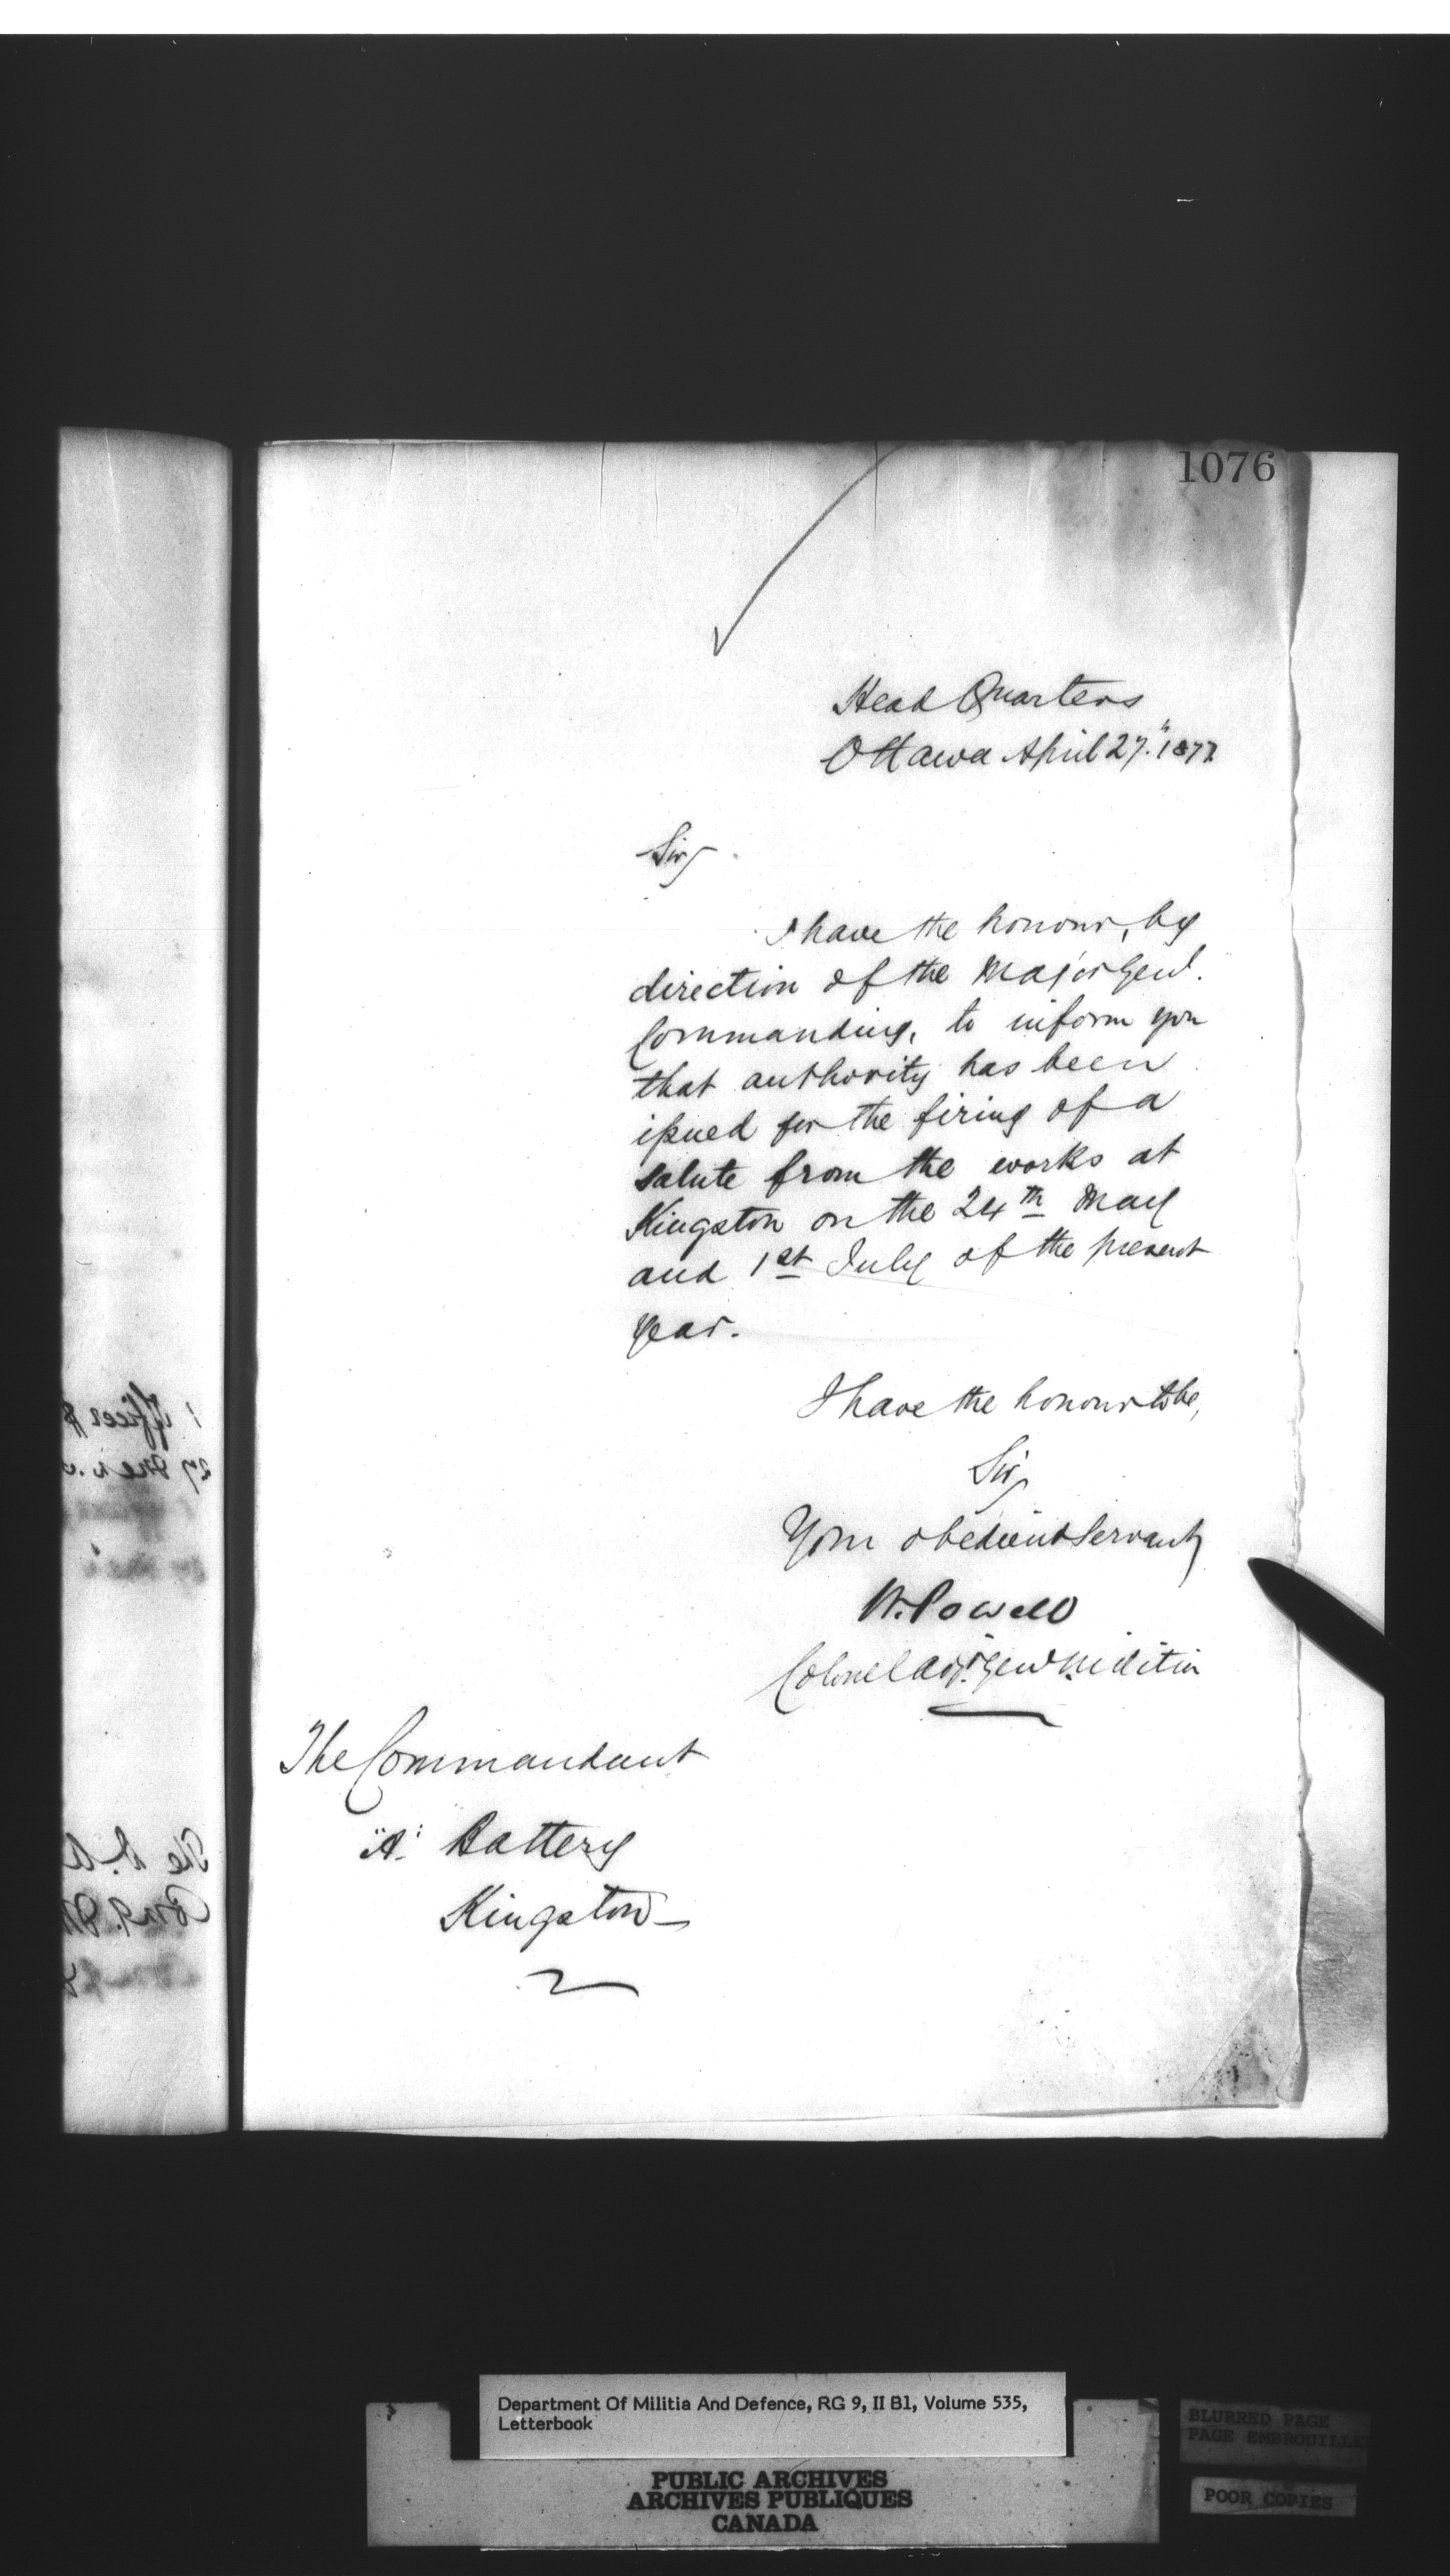 1076
Head Quarters
Ottawa April 27" 1877
Sir,
I have the honour, by
direction of the Major Genl.
Commanding, to inform you
that authority has been
issued for the firing of a
salute from the works at
Kingston on the 24th May
and 1st July of the present
year.
I have the honour to be,
Sir,
Your obedient Servant,
W. Powell
Colonel Adjt. Genl Militia
The Commandant
"A" Battery
Kingston
Department Of Militia And Defence, RG 9, II B1, Volume 535,
Letterbook
PUBLIC ARCHIVES
ARCHIVES PUBLIQUES
CANADA
BLURRED PAGE
PAGE EMBROUILLE
POOR COPIES